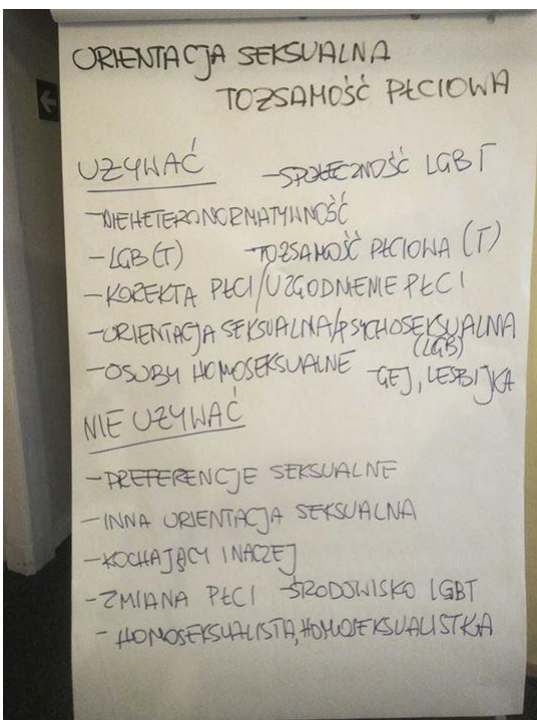 ORIENTACJA SEKSUALNA
TOZSAMOŚĆ PŁCIOWA
UZYWAĆ
-SPOŁECZNOŚĆ LGBT
-NIEHETERONORMATYWNOŚĆ
-LGB(T) -TOZSAMOŚĆ PŁCIOWA (T)
-KOREKTA PŁCI/UZGODNIENIE PŁCI
-ORIENTACJA SEKSUALNA/PSYCHOSEKSUALNA
(LGB)
-OSOBY HOMOSEKSUALNE -GEJ, LESBIJKA
NIE UZYWAĆ
-PREFERENCJE SEKSUALNE
-INNA ORIENTACJA SEKSUALNA
-KOCHAJĄCY INACZEJ
-ZMIANA PŁCI -ŚRODOWISKO LGBT
-HOMOSEKSUALISTA, HOMOSEKSUALISTKA